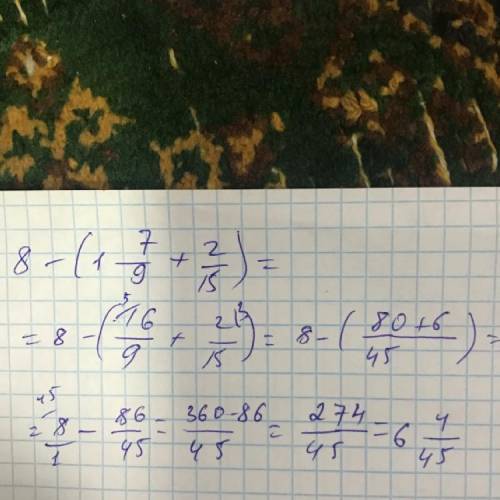 8 - (1 7/9 + 2/15) =
= 8 - (⁵16/9 + 2³/15) = 8 - (80+6/45) =
= ⁴⁵8/1 - 86/45 = 360-86/45 = 274/45 = 6 4/45